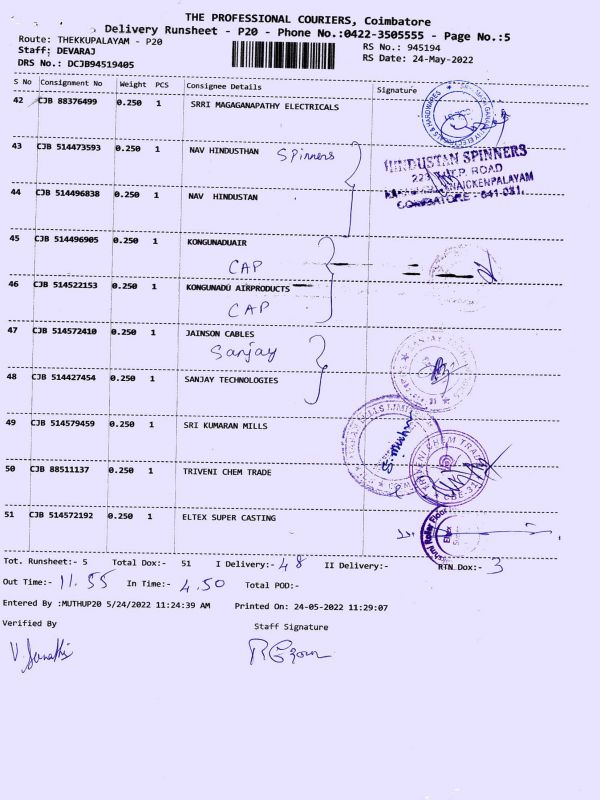 THE PROFESSIONAL COURIERS, Coimbatore
Delivery Runsheet - P20 - Phone No.:0422-3505555 - Page No.:5
Route: THEKKUPALAYAM - P20
RS No.: 945194
Staff: DEVARAJ
RS Date: 24-May-2022
DRS No.: DCJB94519405
S No Consignment No Weight PCS Consignee Details Signature
42 CJB 88376499 0.250 1 SRRI MAGAGANAPATHY ELECTRICALS
43 CJB 514473593 0.250 1 NAV HINDUSTHAN Spinners
HINDUSTAN SPINNERS
ROAD
NAICKENPALAYAM
COIMBATORE - 641 031.
44 CJB 514496838 0.250 1 NAV HINDUSTAN
45 CJB 514496905 0.250 1 KONGUNADUAIR
CAP
46 CJB 514522153 0.250 1 KONGUNADU AIRPRODUCTS
CAP
47 CJB 514572410 0.250 1 JAINSON CABLES
Sanjay
48 CJB 514427454 0.250 1 SANJAY TECHNOLOGIES
49 CJB 514579459 0.250 1 SRI KUMARAN MILLS
50 CJB 88511137 0.250 1 TRIVENI CHEM TRADE
TRIVENI CHEM TRADE
51 CJB 514572192 0.250 1 ELTEX SUPER CASTING
Tot. Runsheet:- 5 Total Dox:- 51 I Delivery:- 48 II Delivery:- RTN Dox:- 3
Out Time:- 11.55 In Time:- 4.50 Total POD:-
Entered By :MUTHUP20 5/24/2022 11:24:39 AM Printed On: 24-05-2022 11:29:07
Verified By Staff Signature